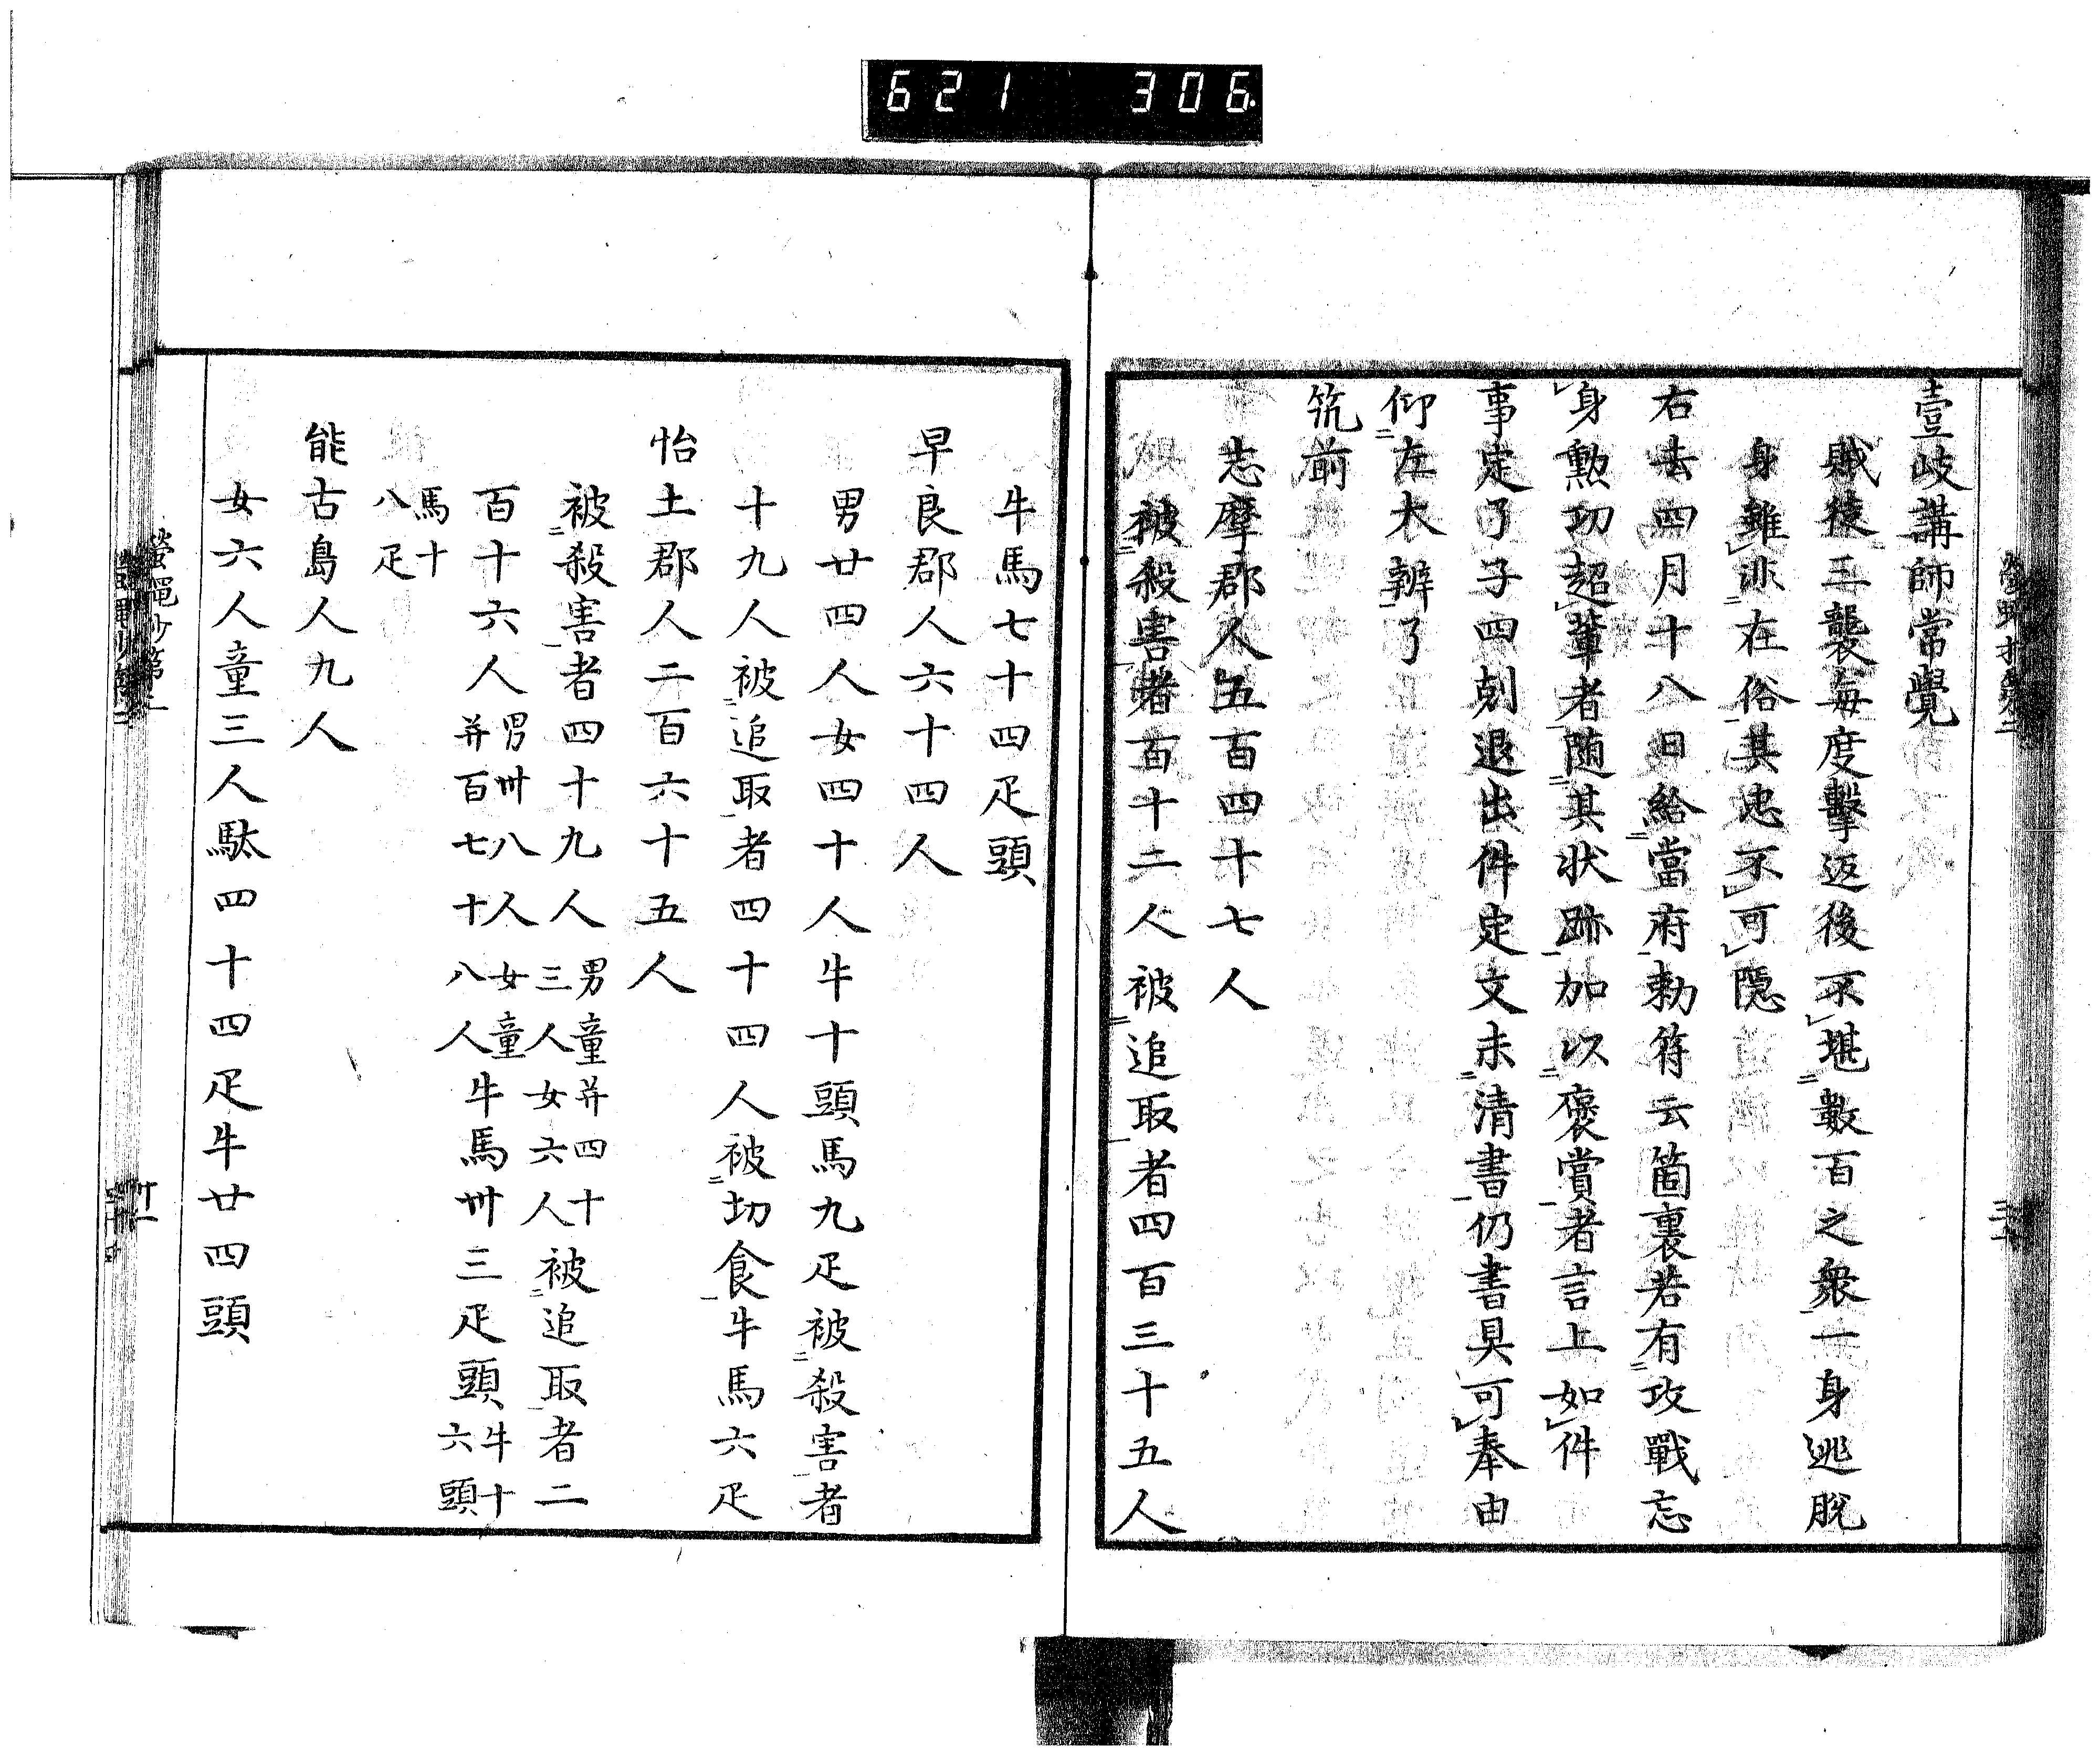 621 306
壹岐講師常覺
賊徒三襲每度擊返後不堪數百之衆一身逃脫
身雖非在俗其忠不可隱
右去四月十八日給當府勅符云箇裏若有攻戰忘
身勲功超輩者随其状跡加以褒賞者言上如件
事定了子四剋退出件定文未清書仍書具可奉由
仰左大辨了
筑前
志摩郡人五百四十七人
被殺害者百十二人被追取者四百三十五人
牛馬七十四疋頭
早良郡人六十四人
男廿四人女四十人牛十頭馬九疋被殺害者
十九人被追取者四十四人被切食牛馬六疋
怡土郡人二百六十五人
被殺害者四十九人男童并四十三人女六人被追取者二
百十六人男卅八人女童并百七十八人牛馬卅三疋頭牛十六頭
馬十八疋
能古島人九人
女六人童三人駄四十四疋牛廿四頭
螢蠅抄第二